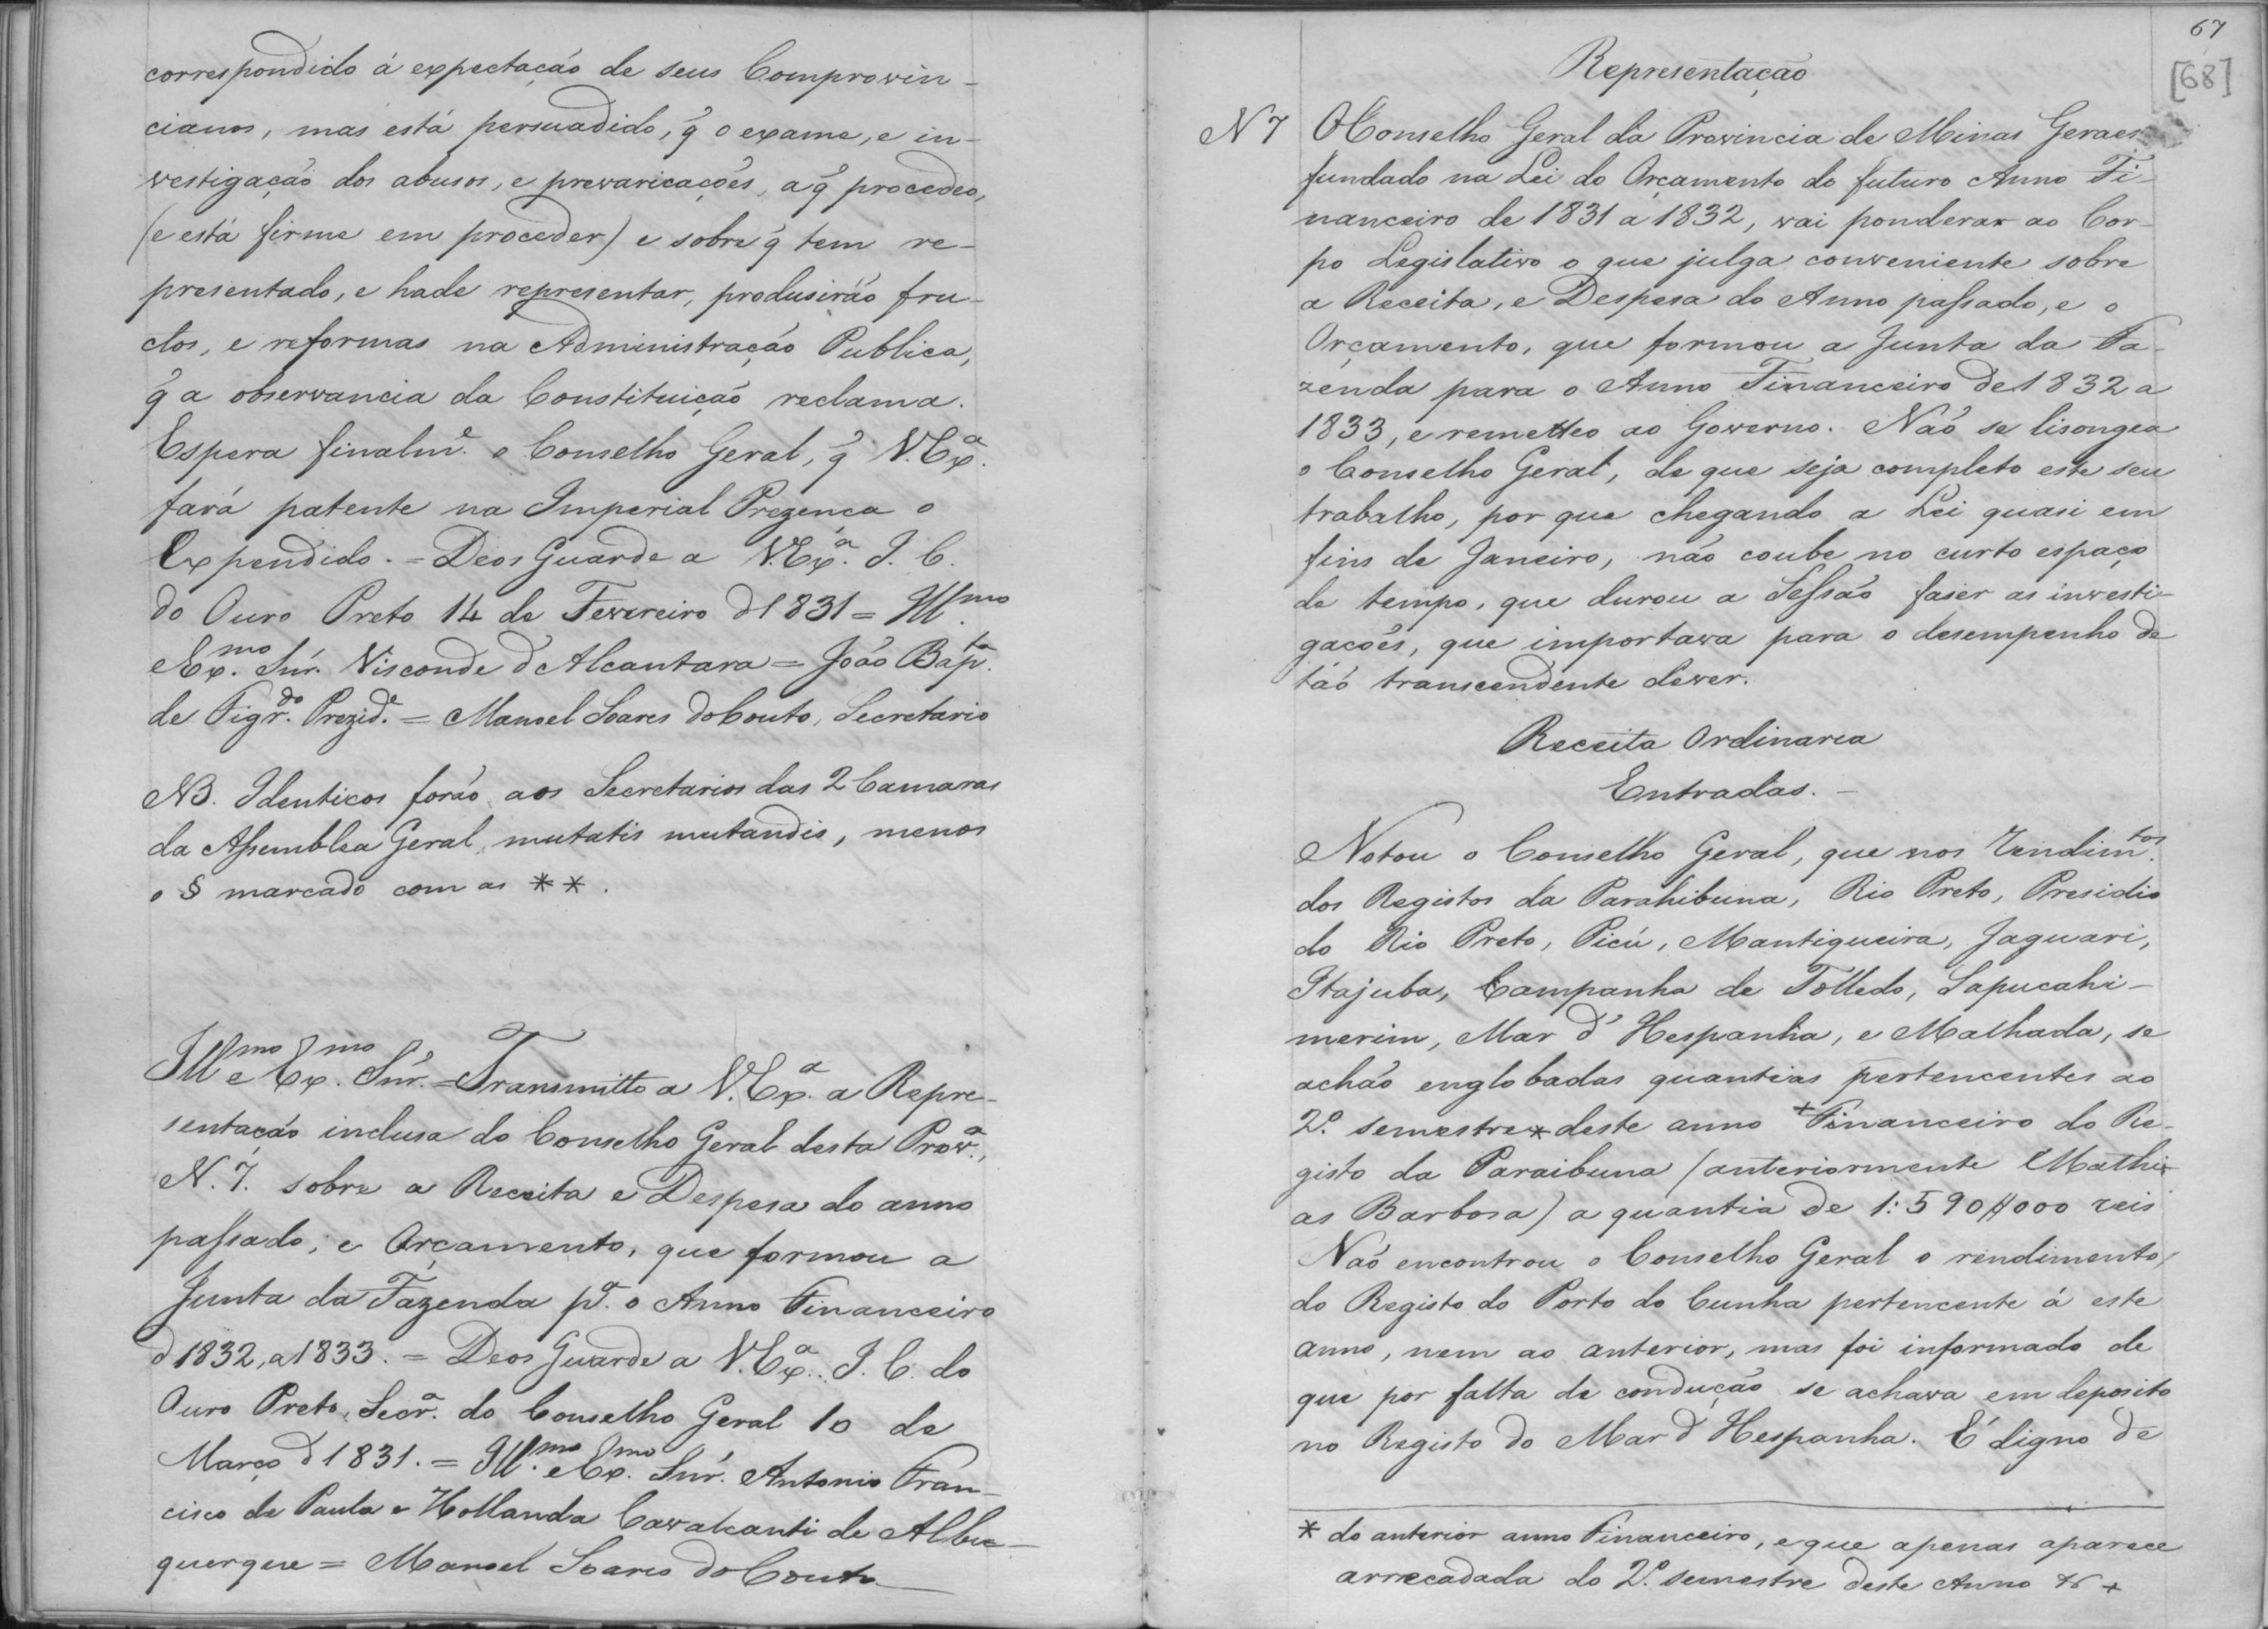 correspondido á expectação de seus Comprovin-
cianos, mas está persuadido, q̃ o exame, e in-
vestigação dos abusos, e prevaricações, a q̃ procedeo,
(e está firme em proceder) e sobre q̃ tem re-
presentado, e hade representar, produsirão fru-
ctos, e reformas na Administração Publica,
q̃ a observancia da Constituição reclama.
Espera finalmᵉ. o Conselho Geral, q̃ V.Exᵃ.
fará patente na Imperial Prezença o
Expendido. = Deos Guarde a V.Exᵃ. I. C.
do Ouro Preto 14 de Fevereiro d'1831 = Illᵐᵒ.
e Exᵐᵒ. Snr. Visconde d'Alcantara = João Bapᵗᵃ.
de Figrᵈᵒ. Prezidᵉ. = Manoel Soares do Couto, Secretario
NB. Identicos forão aos Secretarios das 2 Camaras
da Assemblea Geral, mutatis mutandis, menos
o § marcado com as * *.
Illᵐᵒ e Exᵐᵒ. Snr. = Transmitto a V.Exᵃ. a Repre-
sentação inclusa do Conselho Geral desta Provᵃ.,
N. 7. sobre a Receita e Despesa do anno
passado, e Orçamento, que formou a
Junta da Fazenda pᵃ. o Anno Financeiro
d'1832, a 1833. = Deos Guarde a V.Exᵃ. I. C. do
Ouro Preto, Secrᵃ. do Conselho Geral 10 de
Março d'1831. = Illᵐᵒ. e Exᵐᵒ. Snr. Antonio Fran-
cisco de Paula e Hollanda Cavalcanti de Albu-
querque = Manoel Soares do Couto
67
[68]
Representação
N 7 O Conselho Geral da Provincia de Minas Geraes
fundado na Lei do Orçamento do futuro Anno Fi-
nanceiro de 1831 a 1832, vai ponderar ao Cor-
po Legislativo o que julga conveniente sobre
a Receita, e Despesa do Anno passado, e o
Orçamento, que formou a Junta da Fa-
zenda para o Anno Financeiro de 1832 a
1833, e remetteo ao Governo. Não se lisongea
o Conselho Geral, de que seja completo este seu
trabalho, por que chegando a Lei quasi em
fins de Janeiro, não coube no curto espaço
de tempo, que durou a Sessão faser as investi-
gações, que importava para o desempenho de
tão transcendente dever.
Receita Ordinaria
Entradas. -
Notou o Conselho Geral, que nos rendimᵗᵒˢ.
dos Registos da Parahibuna, Rio Preto, Presidio
do Rio Preto, Picú, Mantiqueira, Jaguari,
Itajuba, Campanha de Tolledo, Sapucahi-
merim, Mar d'Hespanha, e Malhada, se
achão englobadas quantias pertencentes ao
2º. semestre * deste anno + Financeiro do Re-
gisto da Paraibuna (anteriormente Mathi-
as Barbosa) a quantia de 1:590$000 reis
Não encontrou o Conselho Geral o rendimento
do Registo do Porto do Cunha pertencente á este
anno, nem ao anterior, mas foi informado de
que por falta de condução se achava em deposito
no Registo do Mar d'Hespanha. É digno de
* do anterior anno Financeiro, e que apenas aparece
arrecadada do 2º. semestre deste Anno +